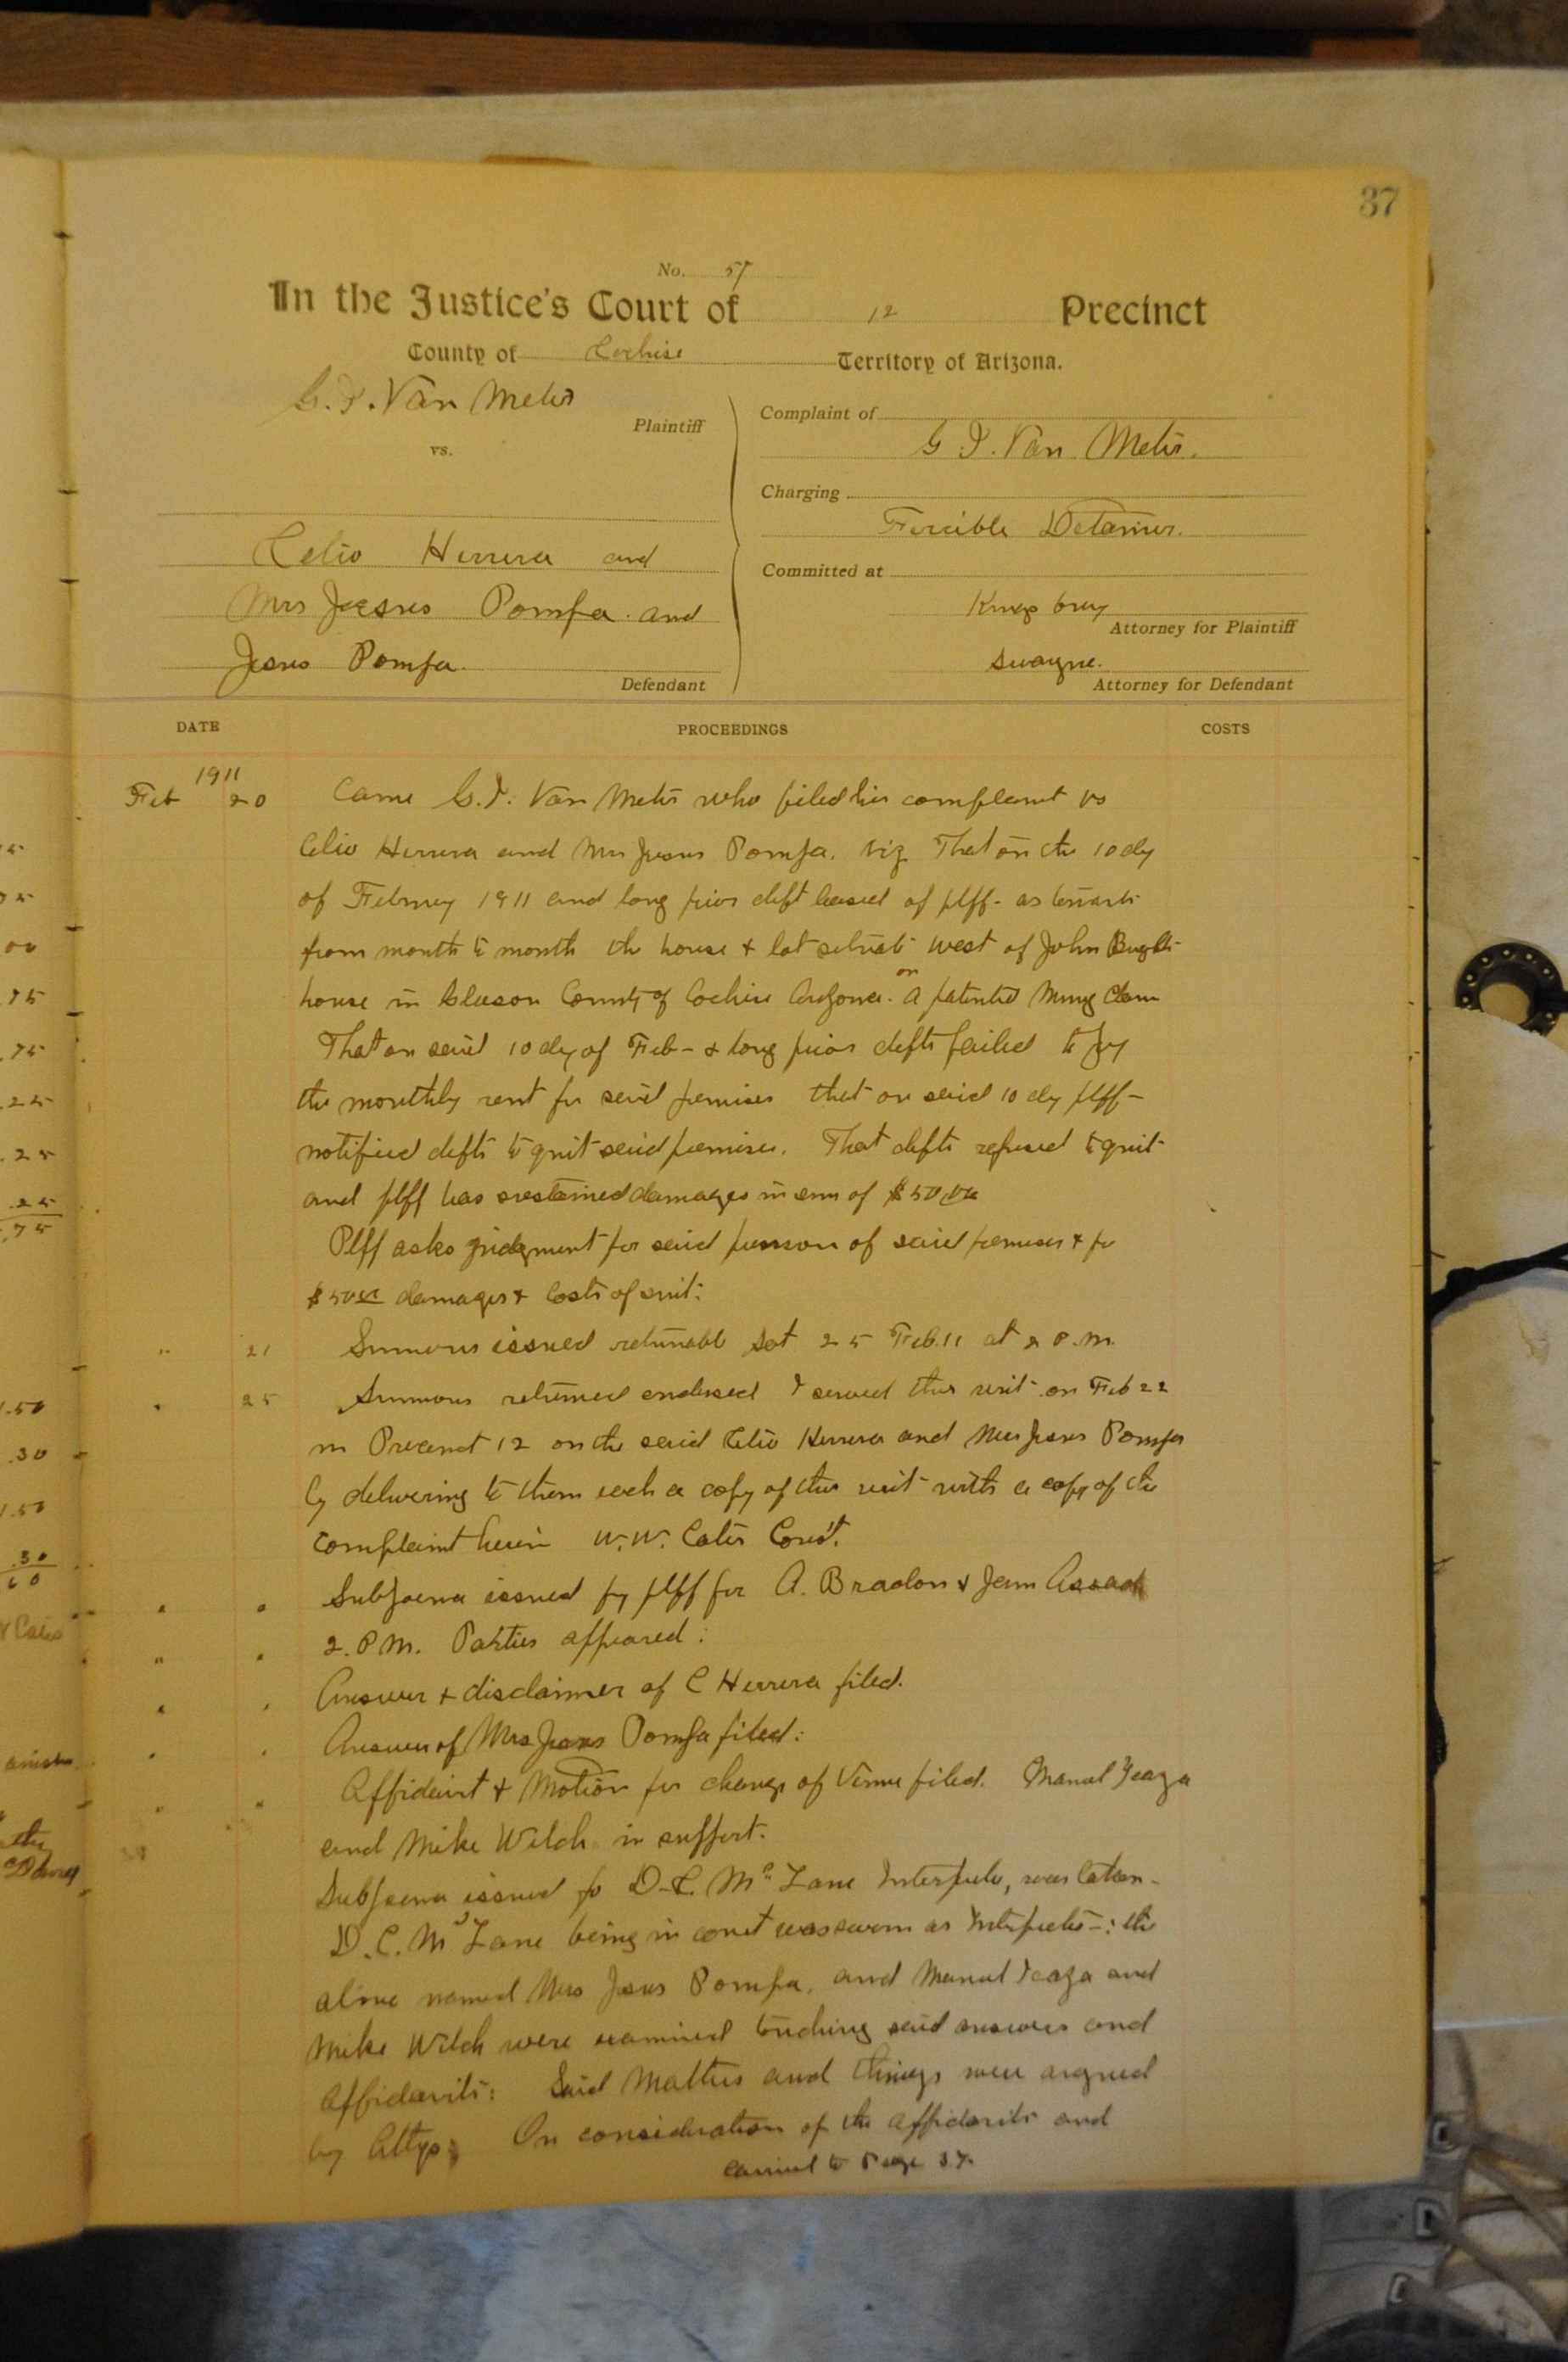 37
No. 57
In the Justice's Court of 12 Precinct
County of Cochise Territory of Arizona.
G. I. Van Meter
Plaintiff
vs.
Celio Herrera and
Mrs Jesus Pompa and
Jesus Pompa.
Defendant
Complaint of
G I. Van Meter.
Charging
Forcible Detainer.
Committed at
Attorney for Plaintiff
Swayne.
Attorney for Defendant
DATE PROCEEDINGS COSTS
1911
Feb 20 Came G. I. Van Meter who filed his complaint vs
Celio Herrera and Mrs Jesus Pompa. viz That on the 10 dy
of February 1911 and long prior deft leased of plff- as tenants
from month to month the house & lot situate west of John
house in Gleeson County of Cochise Arizona. on A patented Mng Claim
That on said 10 dy of Feb- & long prior defts failed to py
the monthly rent for said premises that on said 10 dy plff-
notified defts to quit said premises. That defts refused to quit
and plff has sustained damages in sum of $50.00
Plff asks judgment for said possession of said premises & for
$50.00 damages & Costs of suit.
" 21 Summons issued returnable Sat 25 Feb. 11 at 2 P.M.
" 25 Summons returned endorsed I served this writ on Feb 22
in Precinct 12 on the said Celio Herrera and Mrs Jesus Pompa
by delivering to them each a copy of this writ with a copy of the
complaint herein W. W. Cates Const.
" " Subpoena issued by plff for A. Bradon & Jem Assad
" " 2. P.M. Parties appeared:
" " Answer & disclaimer of C Herrera filed.
" " Answer of Mrs Jesus Pompa filed:
" " Affidavit & Motion for change of Venue filed. Manul Icaza
and Mike Welch in support.
Subpoena issued fo D. C. McLane Interpeter,
D. C. McLane being in court was sworn as Interpeter: the
above named Mrs Jesus Pompa, and Manul Icaza and
Mike Welch were examined touching said answers and
affidavits: Said Matters and things were argued
by Attys; On consideration of the affidavits and
carried to Page 37.